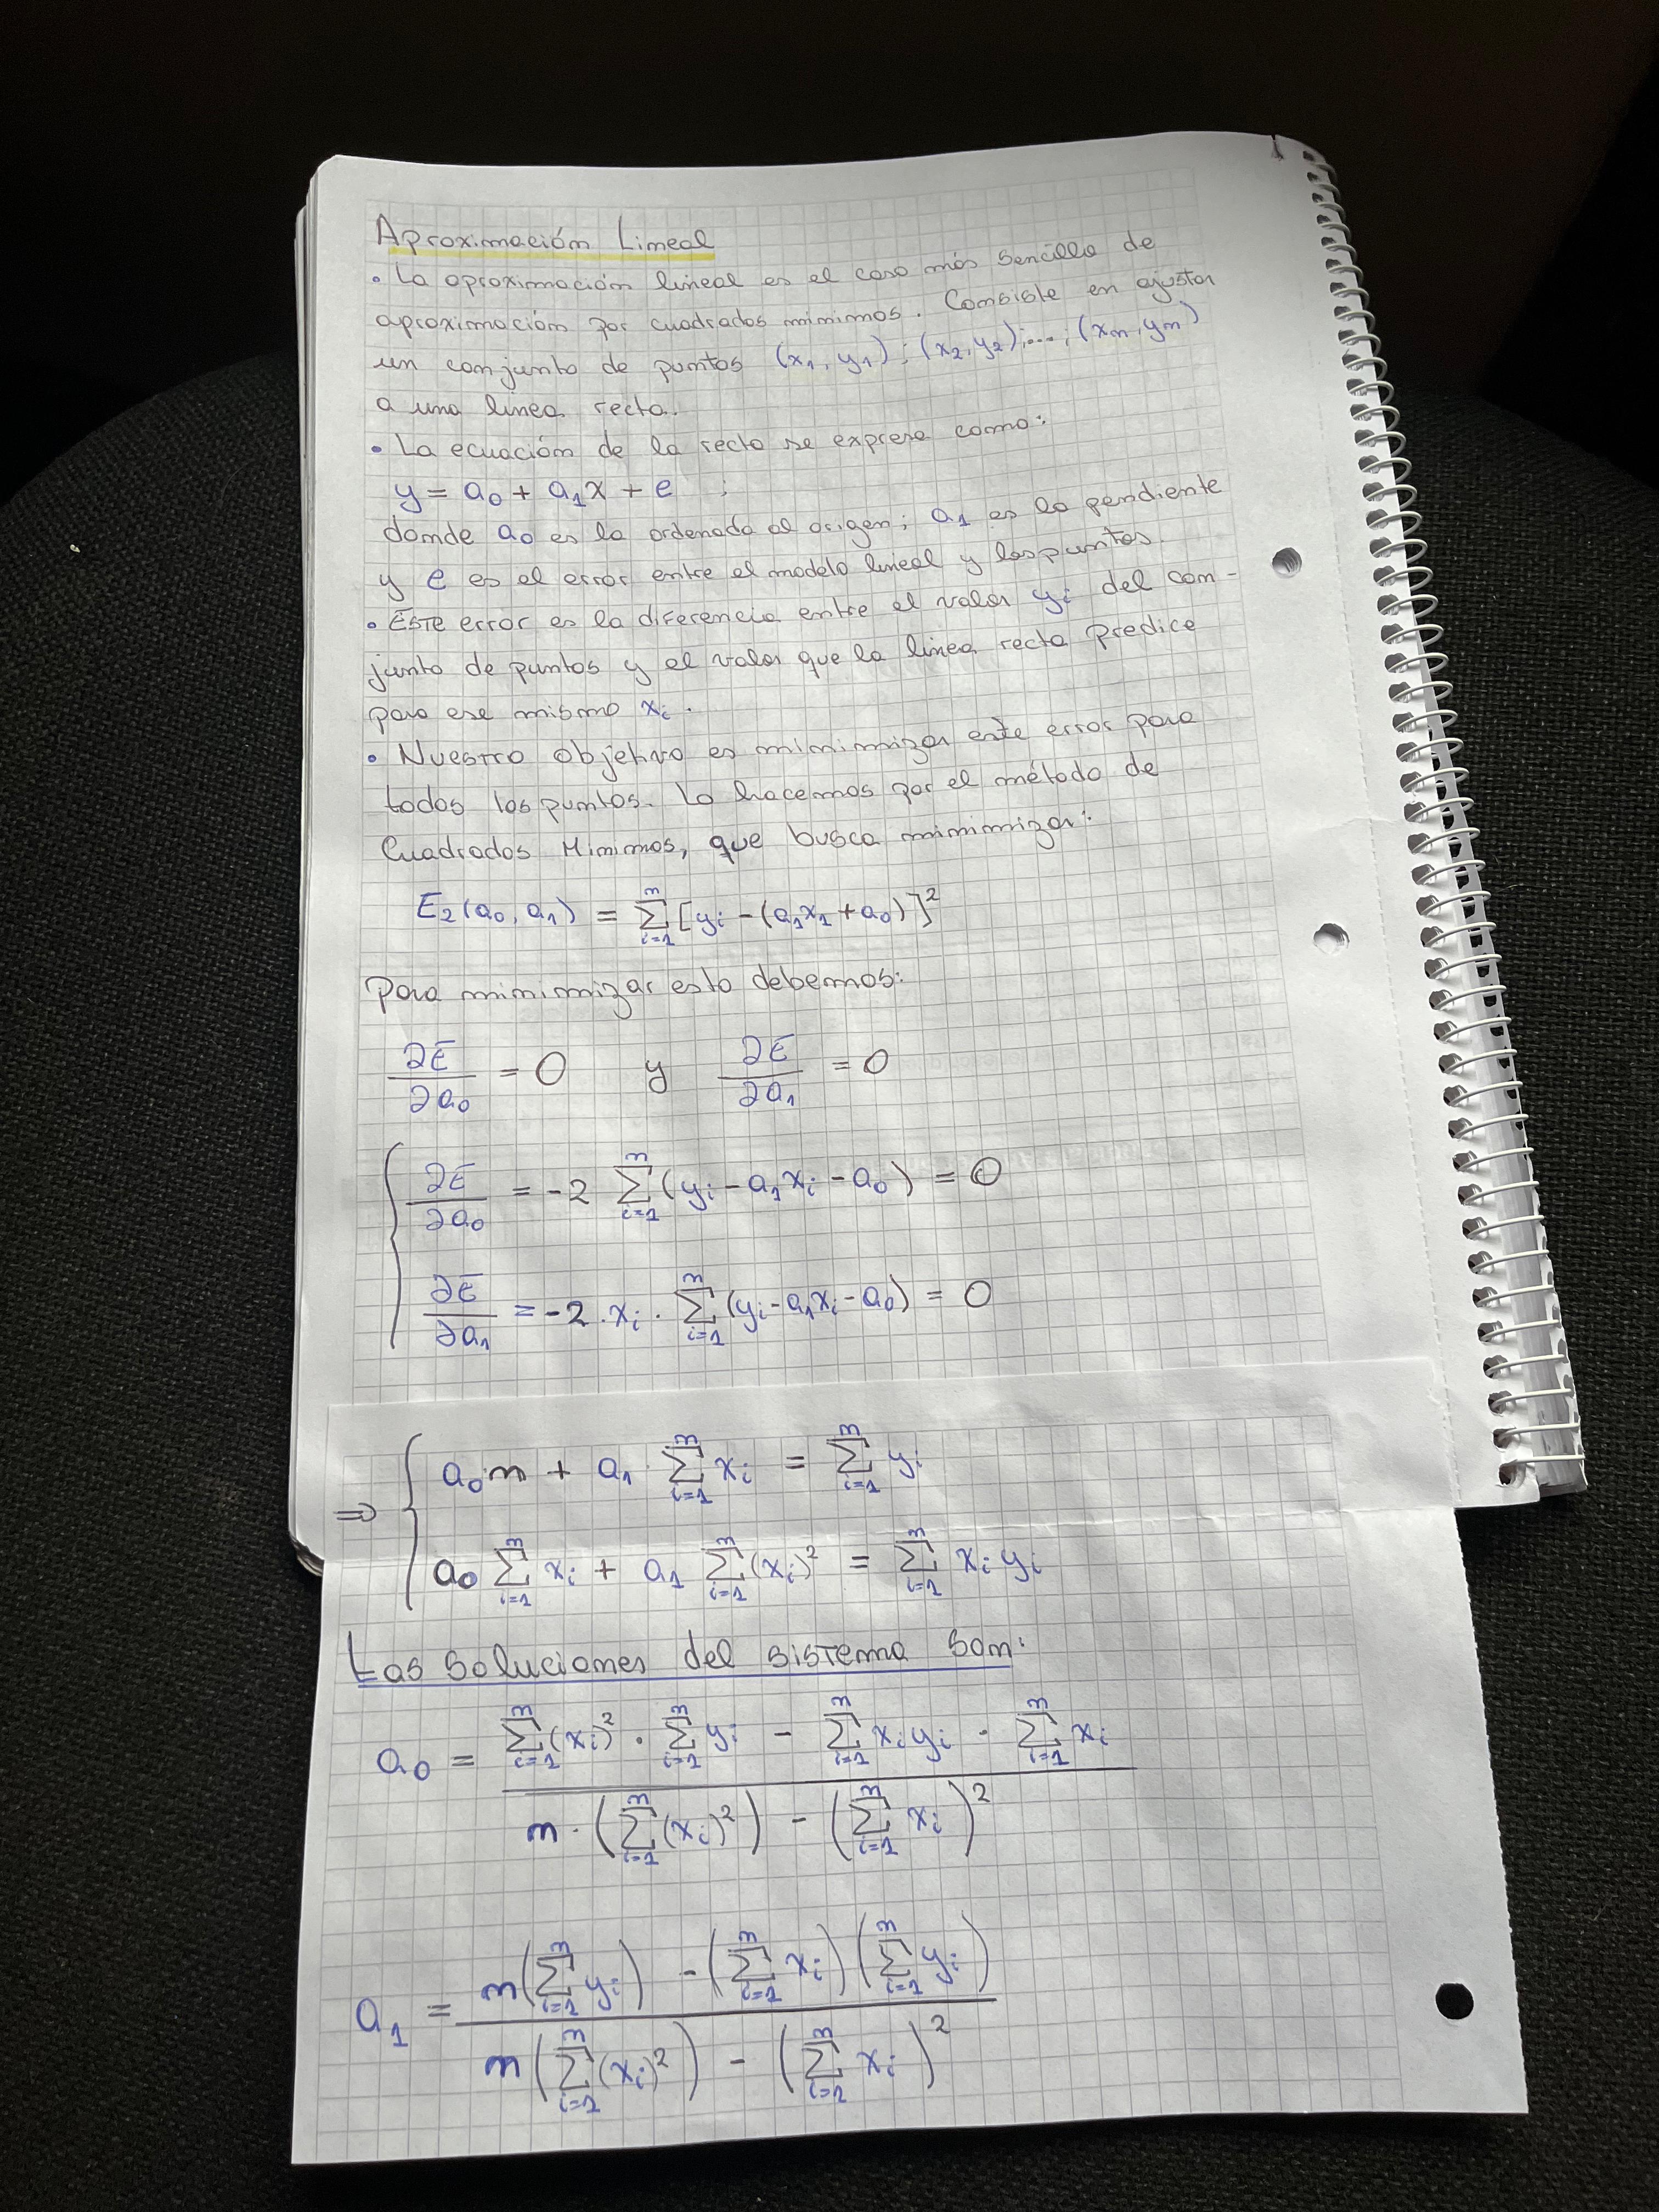 Aproximación Lineal
• La aproximación lineal es el caso más sencillo de
aproximación por cuadrados mínimos. Consiste en ajustar
un conjunto de puntos (x₁, y₁); (x₂, y₂); ...; (xₘ, yₘ)
a una línea recta.
• La ecuación de la recta se expresa como:
y = a₀ + a₁x + e ;
donde a₀ es la ordenada al origen; a₁ es la pendiente
y e es el error entre el modelo lineal y los puntos.
• Este error es la diferencia entre el valor yᵢ del con-
junto de puntos y el valor que la línea recta predice
para ese mismo xᵢ.
• Nuestro objetivo es minimizar este error para
todos los puntos. Lo hacemos por el método de
Cuadrados Mínimos, que busca minimizar:
E₂(a₀, a₁) = ∑ᵢ₌₁ᵐ [yᵢ - (a₁x₁ + a₀)]²
Para minimizar esto debemos:
∂E/∂a₀ = 0 y ∂E/∂a₁ = 0
∂E/∂a₀ = -2 ∑ᵢ₌₁ᵐ (yᵢ - a₁xᵢ - a₀) = 0
∂E/∂a₁ = -2 · xᵢ · ∑ᵢ₌₁ᵐ (yᵢ - a₁xᵢ - a₀) = 0
⇒ { a₀m + a₁ · ∑ᵢ₌₁ᵐ xᵢ = ∑ᵢ₌₁ᵐ yᵢ
a₀ ∑ᵢ₌₁ᵐ xᵢ + a₁ ∑ᵢ₌₁ᵐ (xᵢ)² = ∑ᵢ₌₁ᵐ xᵢ yᵢ
Las soluciones del sistema son:
a₀ = (∑ᵢ₌₁ᵐ (xᵢ)² · ∑ᵢ₌₁ᵐ yᵢ - ∑ᵢ₌₁ᵐ xᵢ yᵢ · ∑ᵢ₌₁ᵐ xᵢ) / (m · (∑ᵢ₌₁ᵐ (xᵢ)²) - (∑ᵢ₌₁ᵐ xᵢ)²)
a₁ = (m(∑ᵢ₌₁ᵐ yᵢ) - (∑ᵢ₌₁ᵐ xᵢ)(∑ᵢ₌₁ᵐ yᵢ)) / (m(∑ᵢ₌₁ᵐ (xᵢ)²) - (∑ᵢ₌₁ᵐ xᵢ)²)